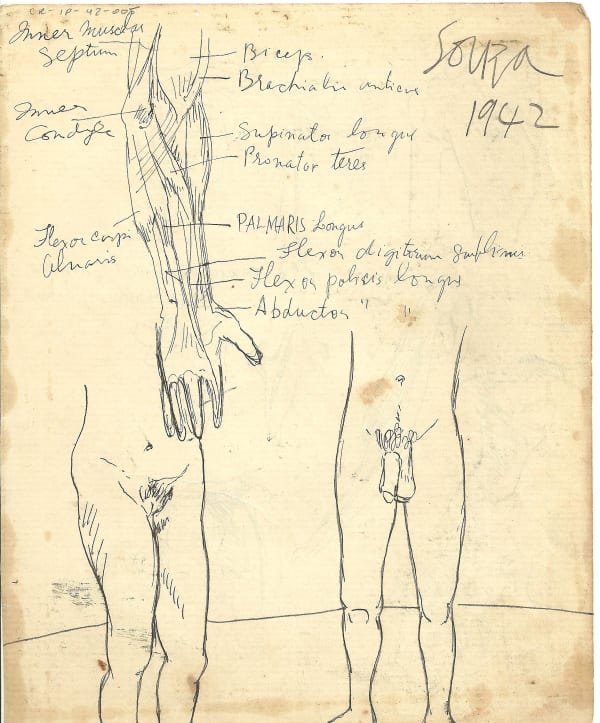 CR-IP-42-008
Inner muscular
Septum
Biceps.
Brachialis anticus
Souza
1942
Inner
Condyle
Supinator longus
Pronator teres
PALMARIS Longus
Flexor carpi
ulnaris
Flexor digitorum sublimus
Flexor policis longus
Abductor " "